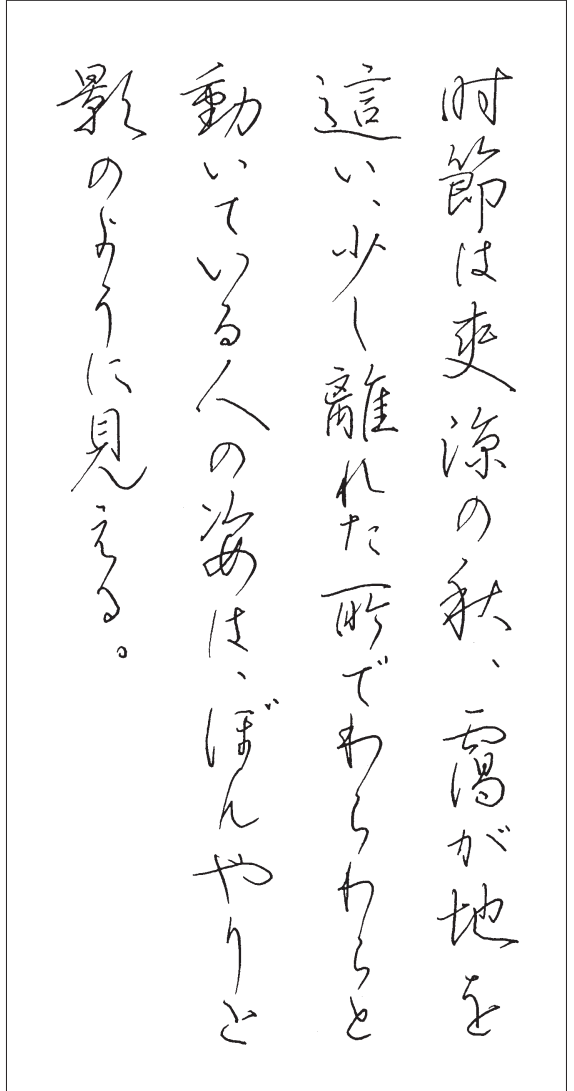 時節は爽涼の秋、靄が地を
這い、少し離れた所でわらわらと
動いている人の姿は、ぼんやりと
影のように見える。